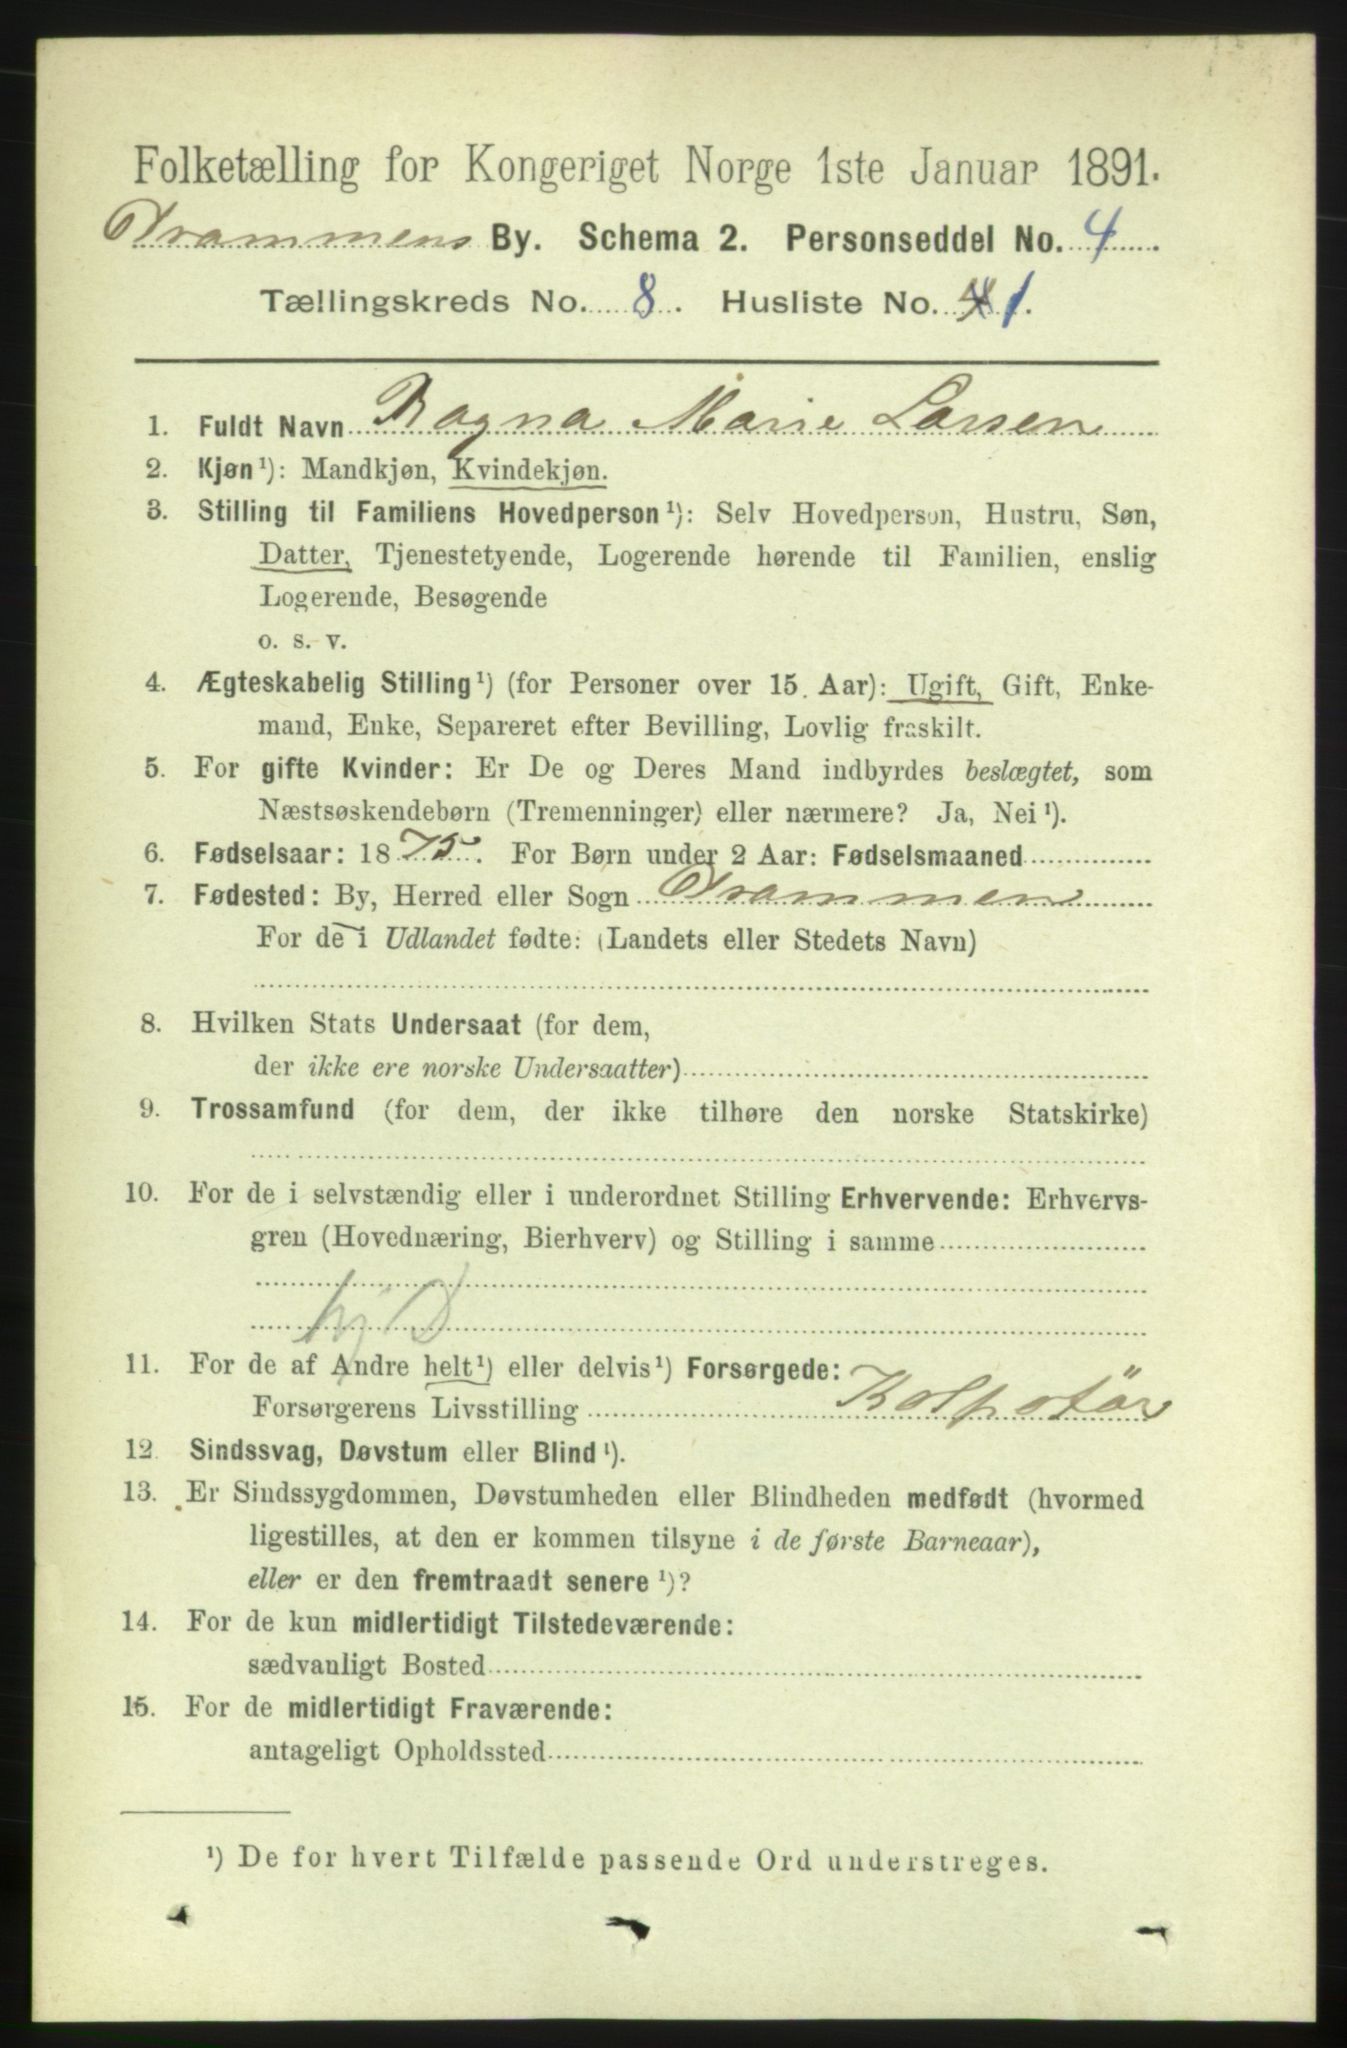 Folketælling for Kongeriget Norge 1ste Januar 1891.
Drammens By. Schema 2. Personseddel No. 4.
Tællingskreds No. 8. Husliste No. 1.
1. Fuldt Navn Ragna Marie Larsen
2. Kjøn¹): Mandkjøn, Kvindekjøn.
3. Stilling til Familiens Hovedperson¹): Selv Hovedperson, Hustru, Søn,
Datter, Tjenestetyende, Logerende hørende til Familien, enslig
Logerende, Besøgende
o. s. v.
4. Ægteskabelig Stilling¹) (for Personer over 15 Aar): Ugift, Gift, Enke-
mand, Enke, Separeret efter Bevilling, Lovlig fraskilt.
5. For gifte Kvinder: Er De og Deres Mand indbyrdes beslægtet, som
Næstsøskendebørn (Tremenninger) eller nærmere? Ja, Nei¹).
6. Fødselsaar: 1875. For Børn under 2 Aar: Fødselsmaaned
7. Fødested: By, Herred eller Sogn Drammen
For de i Udlandet fødte: (Landets eller Stedets Navn)
8. Hvilken Stats Undersaat (for dem,
der ikke ere norske Undersaatter)
9. Trossamfund (for dem, der ikke tilhøre den norske Statskirke)
10. For de i selvstændig eller i underordnet Stilling Erhvervende: Erhvervs-
gren (Hovednæring, Bierhverv) og Stilling i samme
hj D
11. For de af Andre helt¹) eller delvis¹) Forsørgede:
Forsørgerens Livsstilling Kolportör
12. Sindssvag, Døvstum eller Blind¹).
13. Er Sindssygdommen, Døvstumheden eller Blindheden medfødt (hvormed
ligestilles, at den er kommen tilsyne i de første Barneaar),
eller er den fremtraadt senere¹)?
14. For de kun midlertidigt Tilstedeværende:
sædvanligt Bosted
15. For de midlertidigt Fraværende:
antageligt Opholdssted
¹) De for hvert Tilfælde passende Ord understreges.